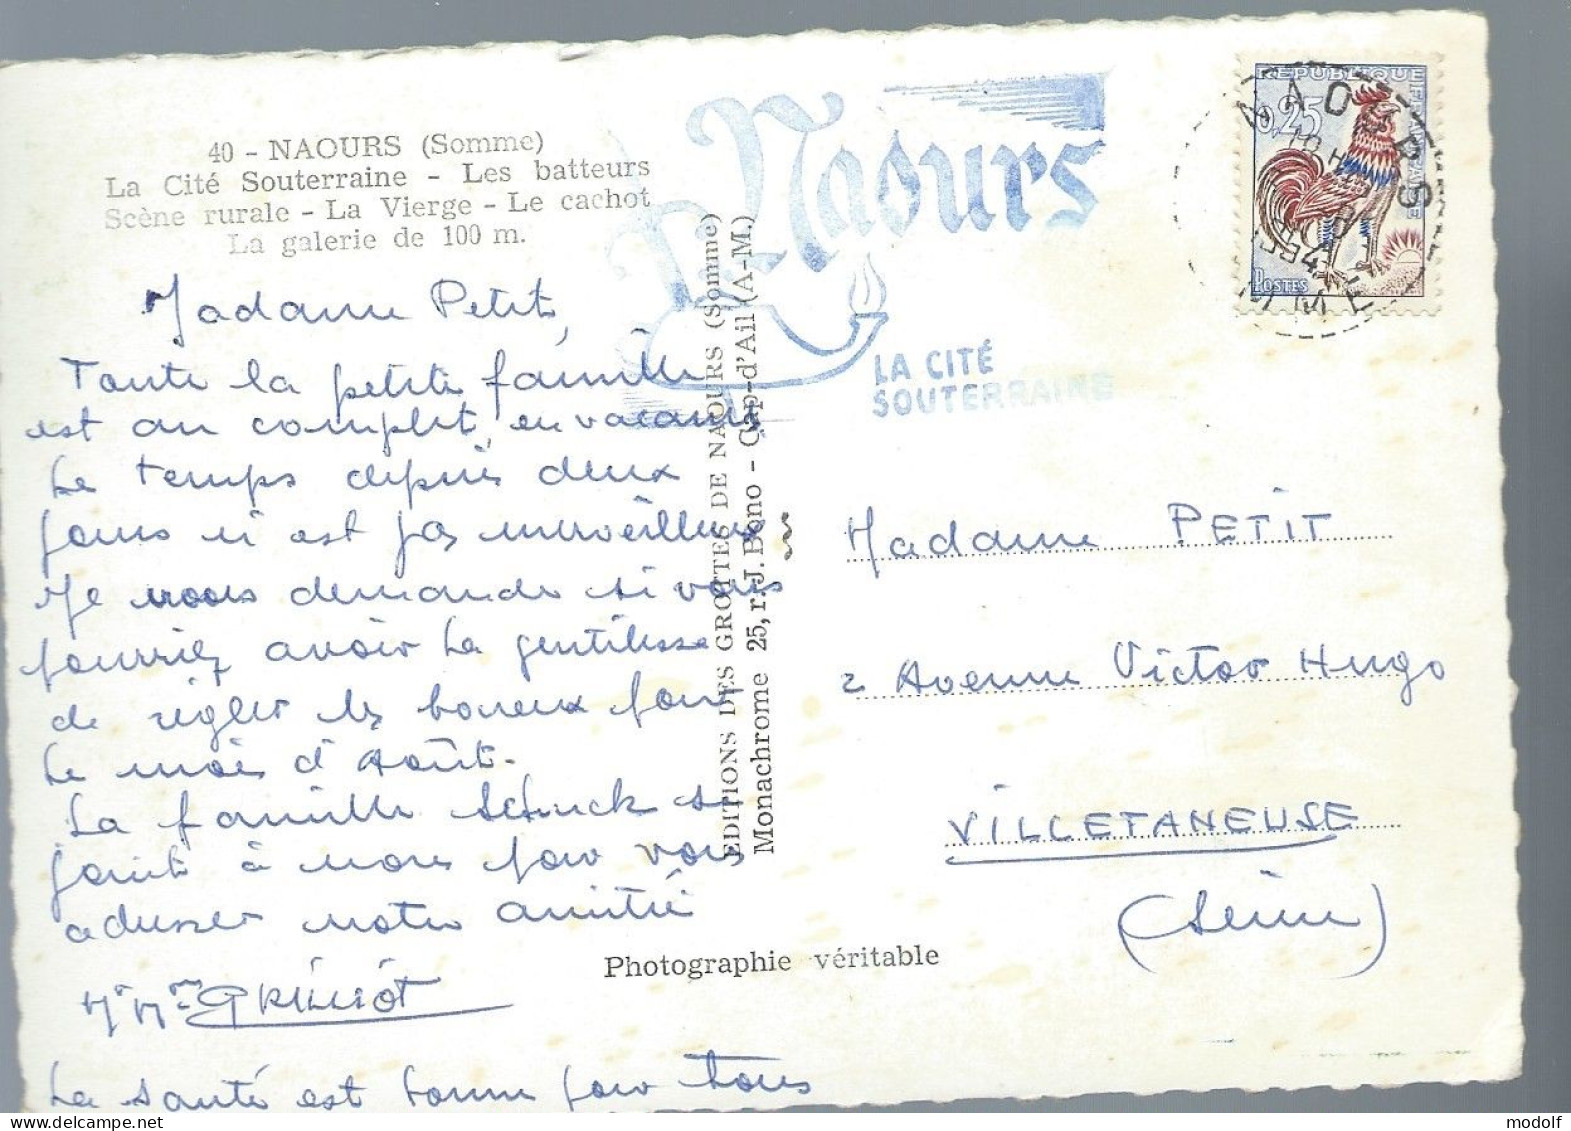 40 - NAOURS (Somme)
La Cité Souterraine - Les batteurs
Scène rurale - La Vierge - Le cachot
La galerie de 100 m.
Naours
LA CITÉ
SOUTERRAINE
RÉPUBLIQUE FRANÇAISE
0,25
POSTES
NAOURS
Madame Petit,
Toute la petite famille
est au complet, en vacances
Le temps depuis deux
jours n'est pas merveilleux
Je vous demande si vous
pourriez avoir la gentillesse
de régler les bonux pour
le mois d'Août.
La famille Schuck se
joint à nous pour vous
adresser notre amitié
Mr Mme GRILLIOT
La santé est bonne pour tous
EDITIONS DES GROTTES DE NAOURS (Somme)
Monachrome 25, r. J. Bono - Cap-d'Ail (A-M.)
Madame PETIT
2 Avenue Victor Hugo
VILLETANEUSE
(Seine)
Photographie véritable
modolf